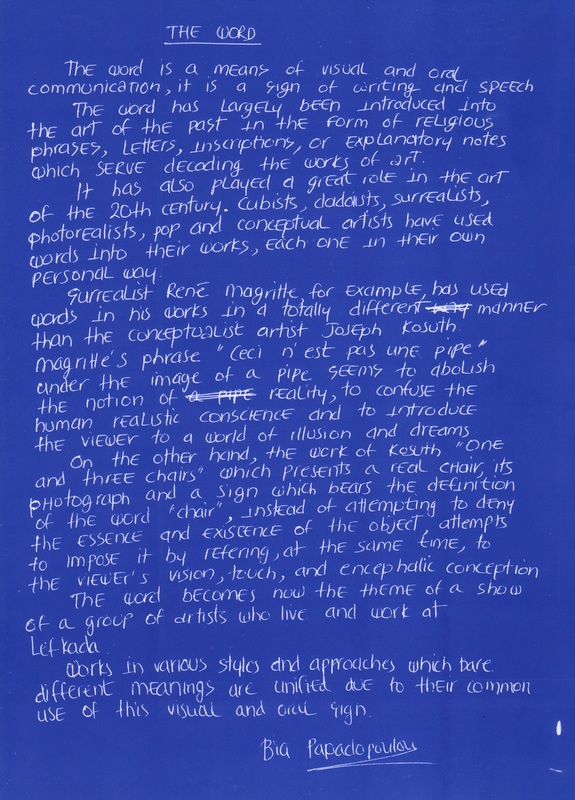 THE WORD
The word is a means of visual and oral
communication, it is a sign of writing and speech
The word has largely been introduced into
the art of the past in the form of religious
phrases, letters, inscriptions, or explanatory notes
which SERVE decoding the works of art.
It has also played a great role in the art
of the 20th century. Cubists, dadaists, surrealists,
photorealists, pop and conceptual artists have used
words into their works, each one in their own
personal way.
Surrealist René Magritte for example, has used
words in his works in a totally different manner
than the conceptualist artist Joseph Kosuth.
Magritte's phrase "Ceci n'est pas une pipe"
under the image of a pipe seems to abolish
the notion of a pipe reality, to confuse the
human realistic conscience and to introduce
the viewer to a world of illusion and dreams
On the other hand, the work of Kosuth "One
and three chairs" which presents a real chair, its
photograph and a sign which bears the definition
of the word "chair", instead of attempting to deny
the essence and existence of the object, attempts
to impose it by refering, at the same time, to
the viewer's vision, touch, and encephalic conception
The word becomes now the theme of a show
of a group of artists who live and work at
Lefkada.
Works in various styles and approaches which bare
different meanings are unified due to their common
use of this visual and oral sign.
Bia Papadopoulou